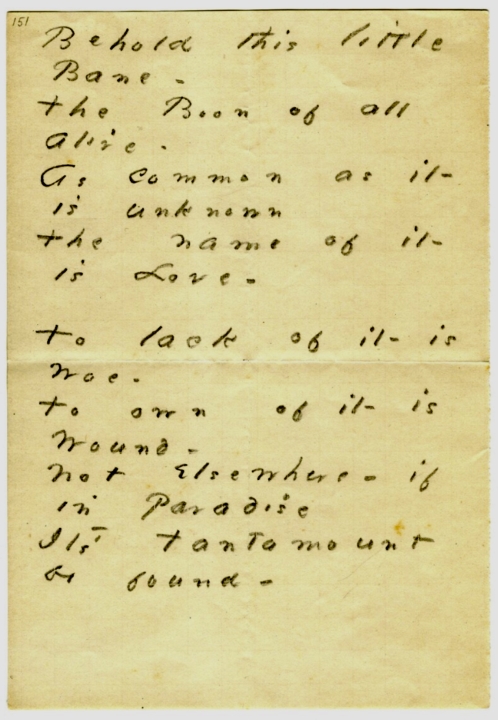 151
Behold this little
Bane -
the Boon of all
alive -
As common as it -
is unknown
the name of it -
is Love -
to lack of it - is
Woe -
to own of it - is
Wound -
Not Elsewhere - if
in Paradise
Its Tantamount
be found -